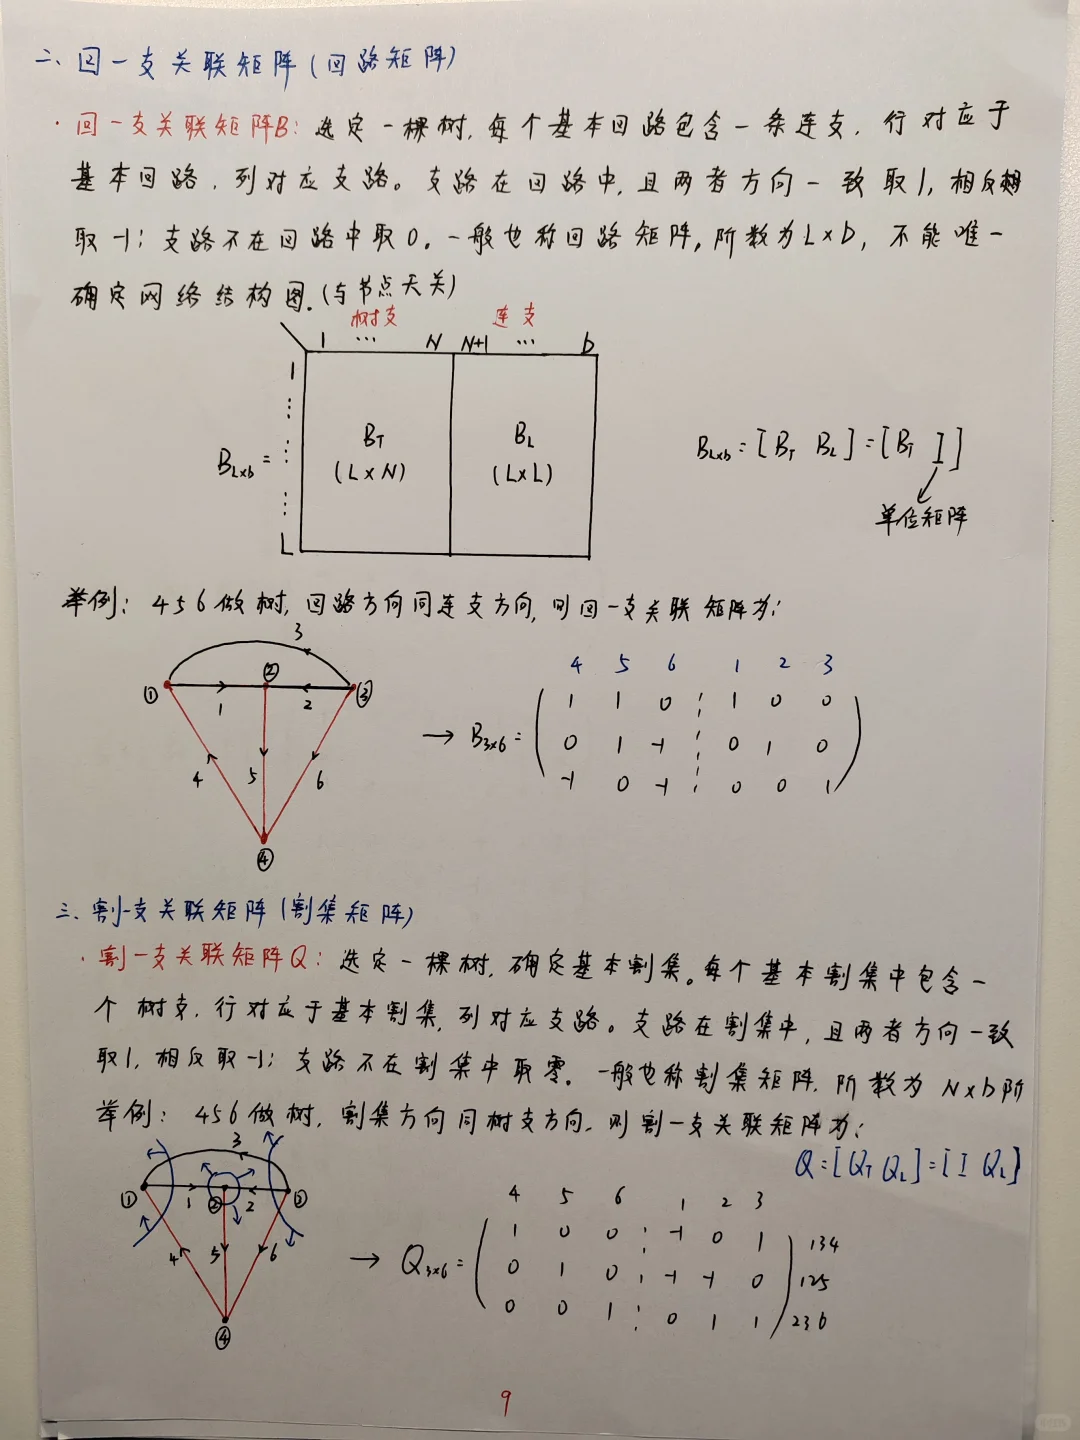 二、回一支关联矩阵(回路矩阵)
·回一支关联矩阵B:选定一棵树,每个基本回路包含一条连支.行对应于
基本回路.列对应支路。支路在回路中,且两者方向一致取1,相反
取-1;支路不在回路中取0.一般也称回路矩阵,阶数为L×b,不能唯一
确定网络结构图.(与节点无关)
树支 连支
1 ··· N N+1 ··· b
1
⋮
L
B_{L×b} =
B_T B_L
(L×N) (L×L)
B_{L×b}=[B_T B_L]=[B_T I]
单位矩阵
举例:456做树,回路方向同连支方向,则回一支关联矩阵为:
3
① ② ③
1 2
4 5 6
④
4 5 6 1 2 3
→ B_{3×6}=
1 1 0 1 0 0
0 1 -1 0 1 0
-1 0 -1 0 0 1
三、割-支关联矩阵(割集矩阵)
·割一支关联矩阵Q:选定一棵树,确定基本割集。每个基本割集中包含一
个树支.行对应于基本割集,列对应支路。支路在割集中,且两者方向一致
取1,相反取-1;支路不在割集中取零.一般也称割集矩阵.阶数为N×b阶
举例:456做树,割集方向同树支方向.则割一支关联矩阵为:
Q=[Q_T Q_L]=[I Q_L]
3
① ②
1 2
4 5 6
④
4 5 6 1 2 3
→ Q_{3×6}=
1 0 0 -1 0 1 134
0 1 0 -1 -1 0 125
0 0 1 0 1 1 236
9